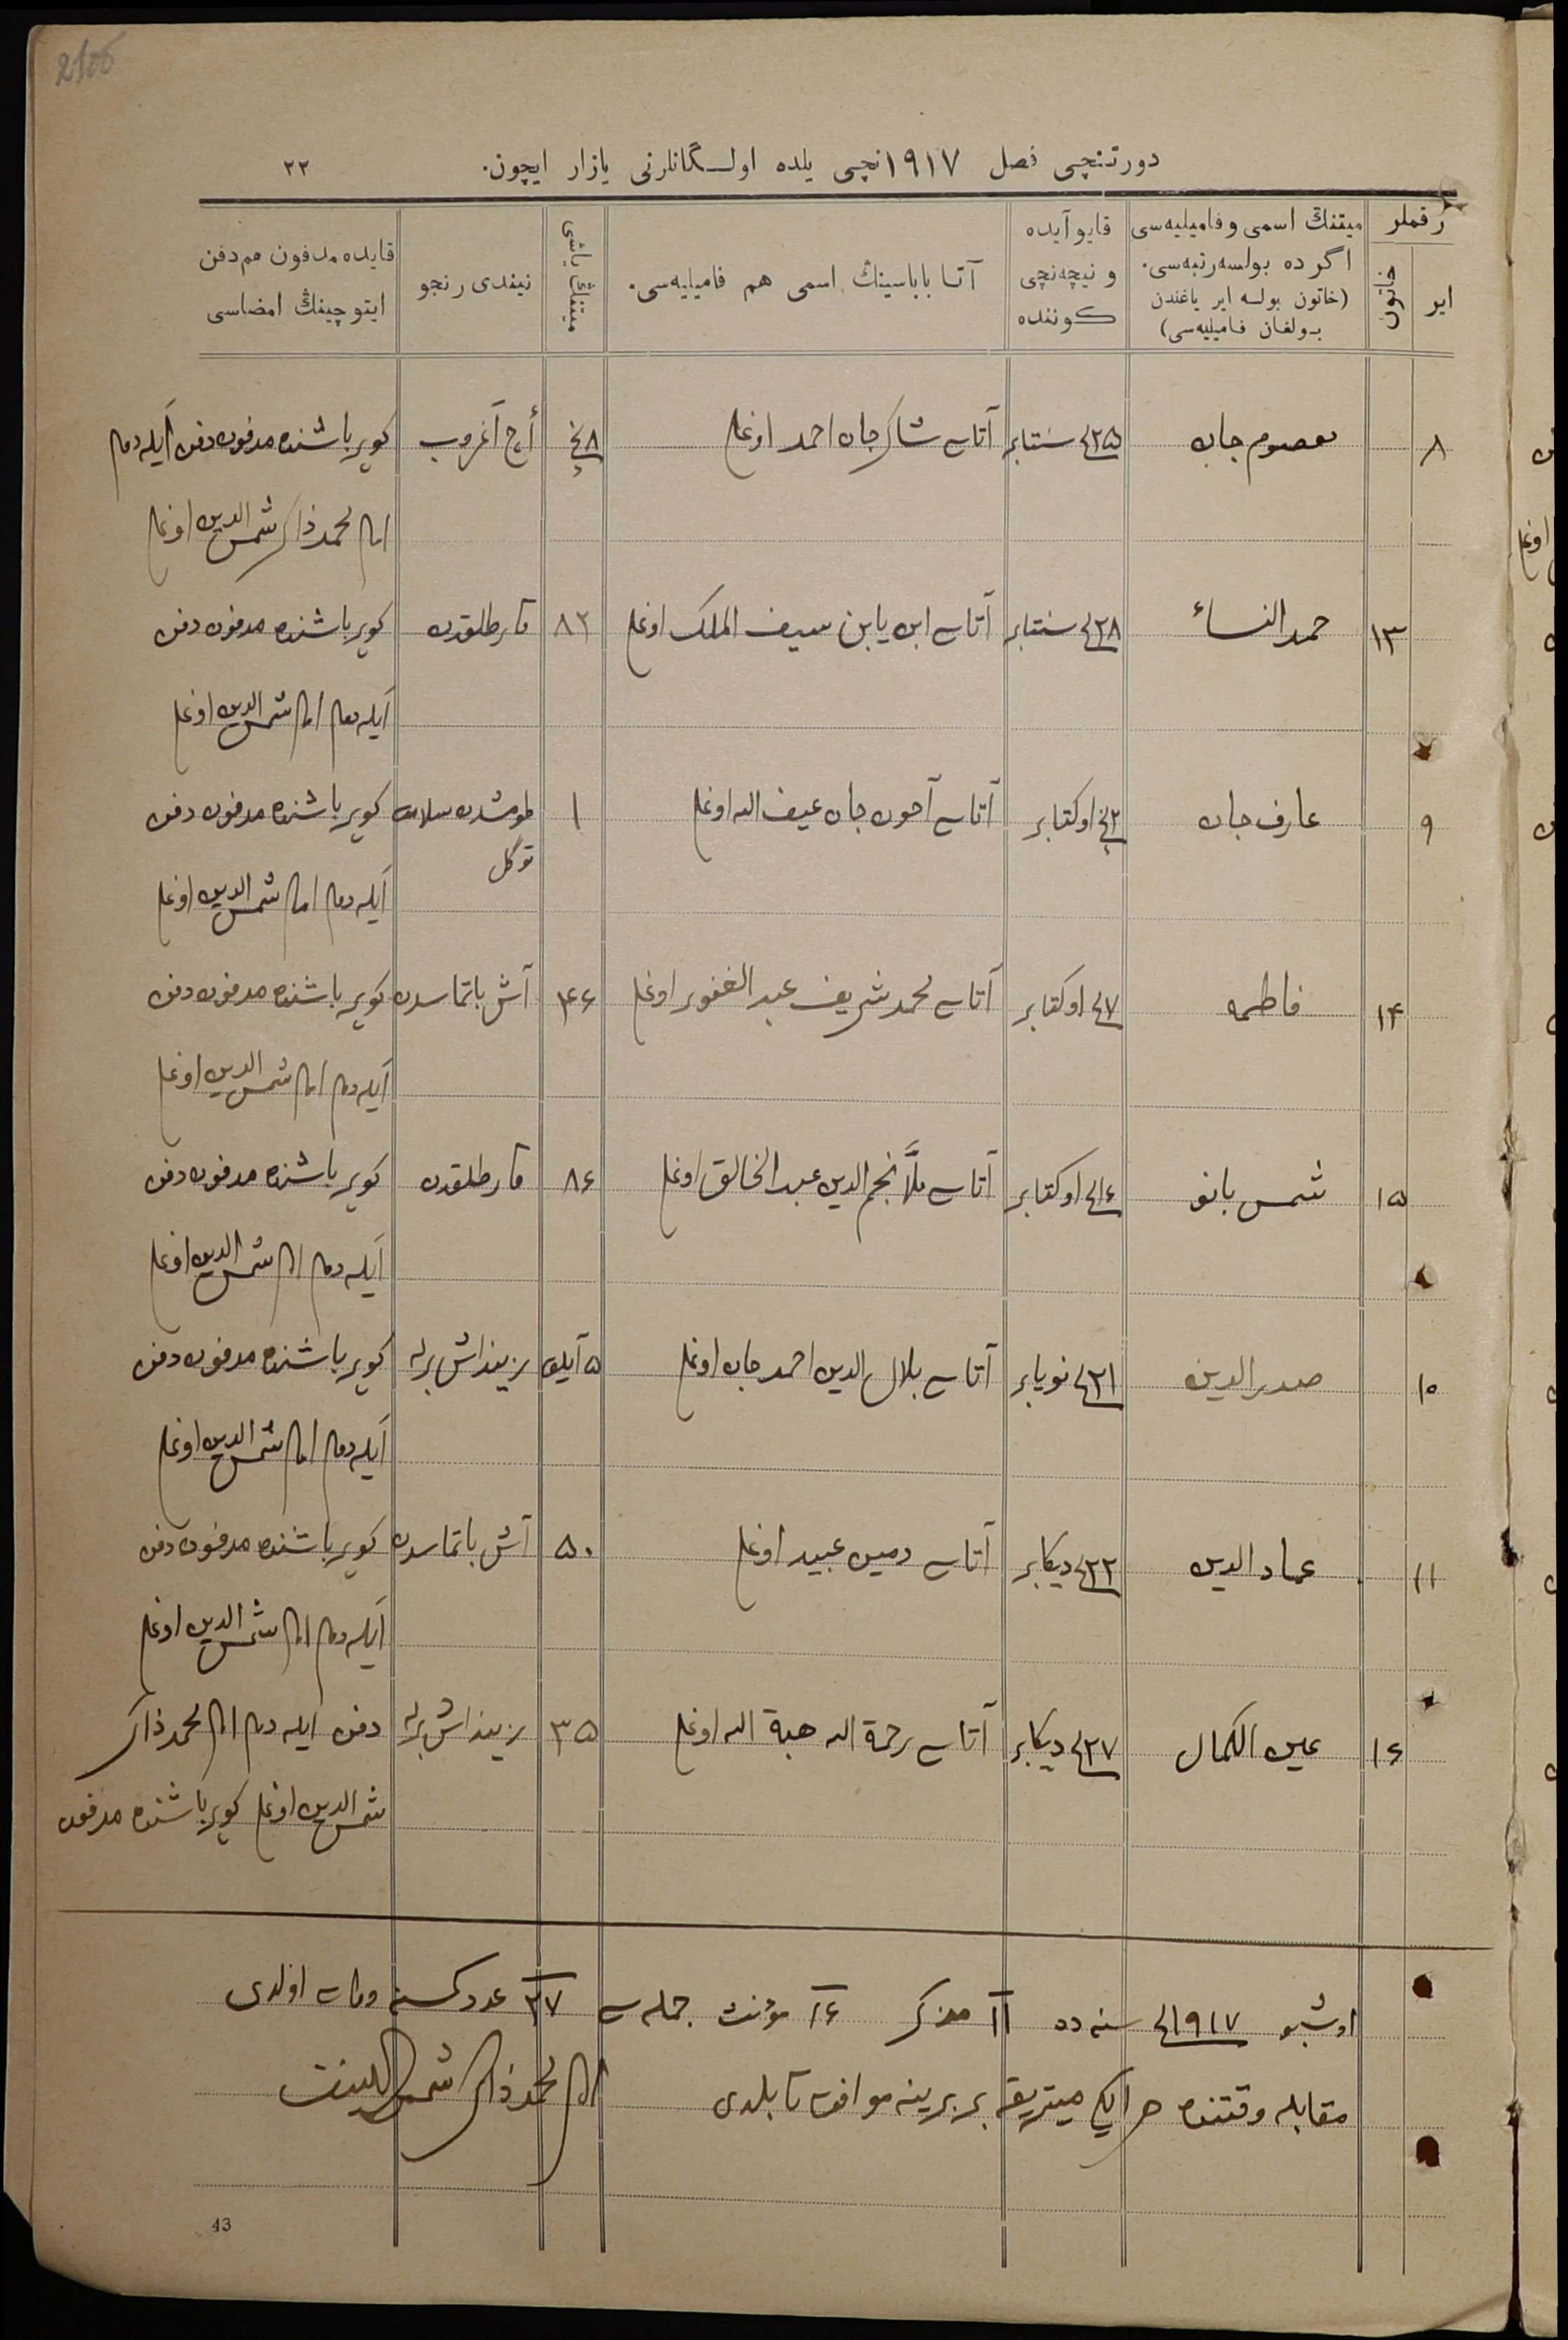 دورتنچی فصل ۱۹۱۷نچی یلده اولـگانلرنی یازار ایچون. ۲۲
رقملر
ایر
خاتون
میتنڭ اسمی و فامیلیه‌سی
اگر ده بولسه رتبه‌سی.
(خاتون بولسه ایر یاغندن
بـولغان فـامیلیه‌سی)
قایو آیده
و نیچه‌نچی
کوننده
آتـا باباسینڭ اسمی هم فامیلیه‌سی.
میتنڭ یاشی
نیندی رنجو
قایده مدفون هم دفن
ایتوچینڭ امضاسی
۸ معصوم جان ۲۵ل سنتابر آتاسی شاکرجان احمد اوغلی ۸نچی أچ آغروب کویر باشنده مدفون دفن ایله‌دم
امام محمد ذاکر شمس الدین اوغلی
۱۳ حمد النساء ۲۸ل سنتابر آتاسی ابن یابن سیف الملک اوغلی ۸۲ قارطلقدن کویر باشنده مدفون دفن
ایله‌دم امام شمس الدین اوغلی
۹ عارف جان ۲نچی اوکتابر آتاسی آحون جان عیف الله اوغلی ۱ طومشدن سلامت کویر باشنده مدفون دفن
توگل
ایله‌دم امام شمس الدین اوغلی
۱۴ فاطمه ۷ل اوکتابر آتاسی محمد شریف عبد الغفور اوغلی ۴۶ آش باتماسدن کویر باشنده مدفون دفن
ایله‌دم امام شمس الدین اوغلی
۱۵ شمس بانو ۱۶ل اوکتابر آتاسی ملاّ نجم الدین عبد الخالق اوغلی ۸۶ قارطلقدن کویر باشنده مدفون دفن
ایله‌دم امام شمس الدین اوغلی
۱۰ صدر الدین ۲۱ل نویابر آتاسی بلال الدین احمد جان اوغلی ۵ آیلق کویر باشنده مدفون دفن
ایله‌دم امام شمس الدین اوغلی
۱۱ عماد الدین ۲۲ل دیکابر آتاسی عبید اوغلی ۵۰ آش باتماسدن کویر باشنده مدفون دفن
ایله‌دم امام شمس الدین اوغلی
۱۶ عین الکمال ۲۷ل دیکابر آتاسی رحمة الله هبة الله اوغلی ۳۵ دفن ایله‌دم امام محمد ذاکر
شمس الدین اوغلی کویر باشنده مدفون
اوشبو ۱۹۱۷ل سنه ده ۱۱ مذکر ۱۶ مؤنث جمله‌سی ۲۷ عدد کمسنه وفات اولدی
مقابله وقتنده هر ایکی میتریقه بر برینه موافق تابلدی امام محمد ذاکر شمس الدینف
43